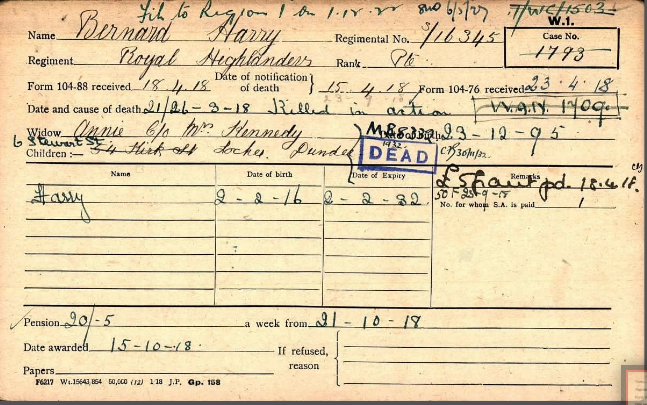 File to Region 1 on 1.12.22 8no 6/5/27 7/WC/1503
W.1.
Name Bernard Harry Regimental No. 3/16345 Case No.
1793
Regiment Royal Highlanders Rank Pte
Form 104-88 received 18.4.18 Date of notification of death 15.4.18 Form 104-76 received 23.4.18
Date and cause of death 21/26-3-18 Killed in action W.A.N. 1709
Widow Annie c/o Mrs. Kennedy 23-12-95
6 Stewart St.
Children:— 54 Kirk St Lochee, Dundee DEAD 1932 30/11/32
Name Date of birth Date of Expiry Remarks
Harry 2-2-16 2-2-32 £5 Grant pd. 18.4.18.
50F 25-9-18
No. for whom S.A. is paid 1
Pension 20/-5 a week from 21-10-18
Date awarded 15-10-18. If refused, reason
Papers
F6217 Wt.15643,854 50,000 (12) 1·18 J.P. Gp. 158